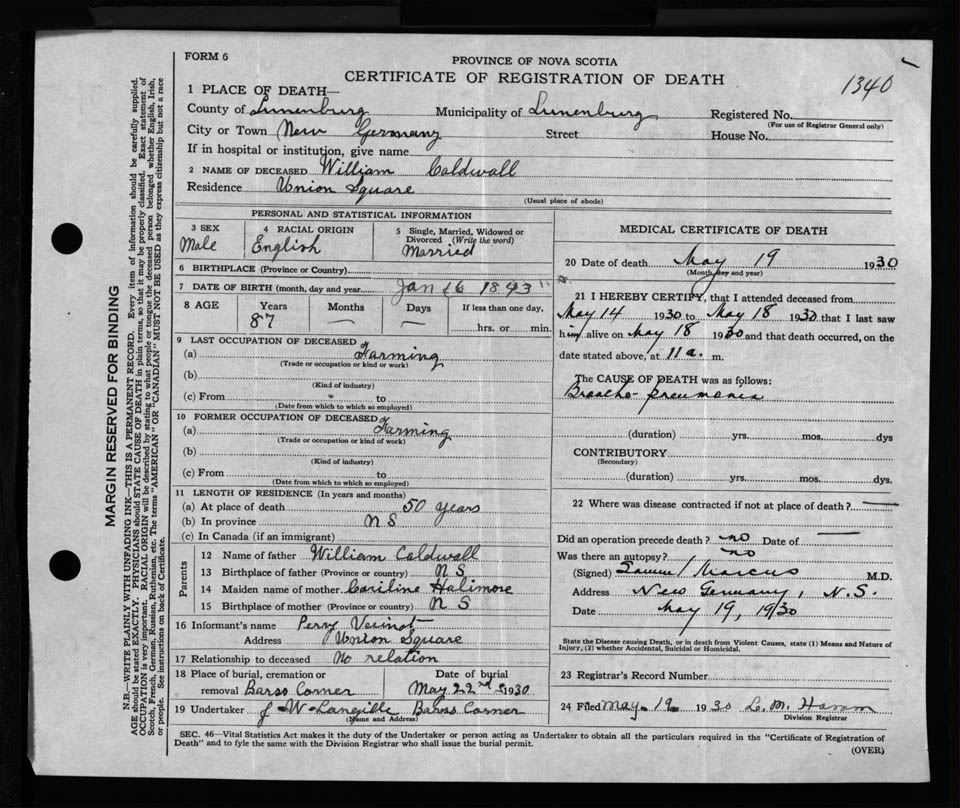 FORM 6
PROVINCE OF NOVA SCOTIA
CERTIFICATE OF REGISTRATION OF DEATH
1340
1 PLACE OF DEATH—
County of Lunenburg Municipality of Lunenburg Registered No.
(For use of Registrar General only)
City or Town New Germany Street House No.
If in hospital or institution, give name
2 NAME OF DECEASED William Caldwall
Residence Union Square
(Usual place of abode)
PERSONAL AND STATISTICAL INFORMATION
3 SEX 4 RACIAL ORIGIN 5 Single, Married, Widowed or Divorced (Write the word)
Male English Married
6 BIRTHPLACE (Province or Country)
7 DATE OF BIRTH (month, day and year) Jan 16 1843
8 AGE Years Months Days If less than one day,
87 — — hrs. or min.
9 LAST OCCUPATION OF DECEASED
(a) Farming
(Trade or occupation or kind or work)
(b)
(Kind of industry)
(c) From to
(Date from which to which so employed)
10 FORMER OCCUPATION OF DECEASED
(a) Farming
(Trade or occupation or kind of work)
(b)
(Kind of industry)
(c) From to
(Date from which to which so employed)
11 LENGTH OF RESIDENCE (In years and months)
(a) At place of death 50 years
(b) In province N S
(c) In Canada (if an immigrant)
Parents
12 Name of father William Caldwall
13 Birthplace of father (Province or country) N S
14 Maiden name of mother Cariline Halimore
15 Birthplace of mother (Province or country) N S
16 Informant's name Perry Veinot
Address Union Square
17 Relationship to deceased No relation
18 Place of burial, cremation or removal Barss Corner Date of burial May 22nd 1930
19 Undertaker J W Langille Barss Corner
(Name and Address)
MEDICAL CERTIFICATE OF DEATH
20 Date of death May 19 1930
(Month, day and year)
21 I HEREBY CERTIFY, that I attended deceased from
May 14 1930 to May 18 1930 that I last saw
him alive on May 18 1930 and that death occurred, on the
date stated above, at 11 a. m.
The CAUSE OF DEATH was as follows:
Broncho-pneumonia
(duration) yrs. mos. dys
CONTRIBUTORY
(Secondary)
(duration) yrs. mos. dys.
22 Where was disease contracted if not at place of death? —
Did an operation precede death? no Date of —
Was there an autopsy? no
(Signed) Marcus M.D.
Address New Germany, N.S.
Date May 19, 1930
State the Disease causing Death, or in death from Violent Causes, state (1) Means and Nature of
Injury, (2) whether Accidental, Suicidal or Homicidal.
23 Registrar's Record Number
24 Filed May 19 1930 L. M. Hamm
Division Registrar
SEC. 46—Vital Statistics Act makes it the duty of the Undertaker or person acting as Undertaker to obtain all the particulars required in the "Certificate of Registration of
Death" and to fyle the same with the Division Registrar who shall issue the burial permit.
(OVER)
MARGIN RESERVED FOR BINDING
N.B.—WRITE PLAINLY WITH UNFADING INK—THIS IS A PERMANENT RECORD. Every item of information should be carefully supplied.
AGE should be stated EXACTLY. PHYSICIANS should STATE CAUSE OF DEATH in plain terms, so that it may be properly classified. Exact statement of
OCCUPATION is very important. RACIAL ORIGIN will be described by stating to what people or tongue the deceased person belonged whether English, Irish,
Scotch, French, German, Russian, Ruthenian, etc. The terms "AMERICAN" OR "CANADIAN" MUST NOT BE USED as they express citizenship but not a race
or people. See instructions on back of Certificate.